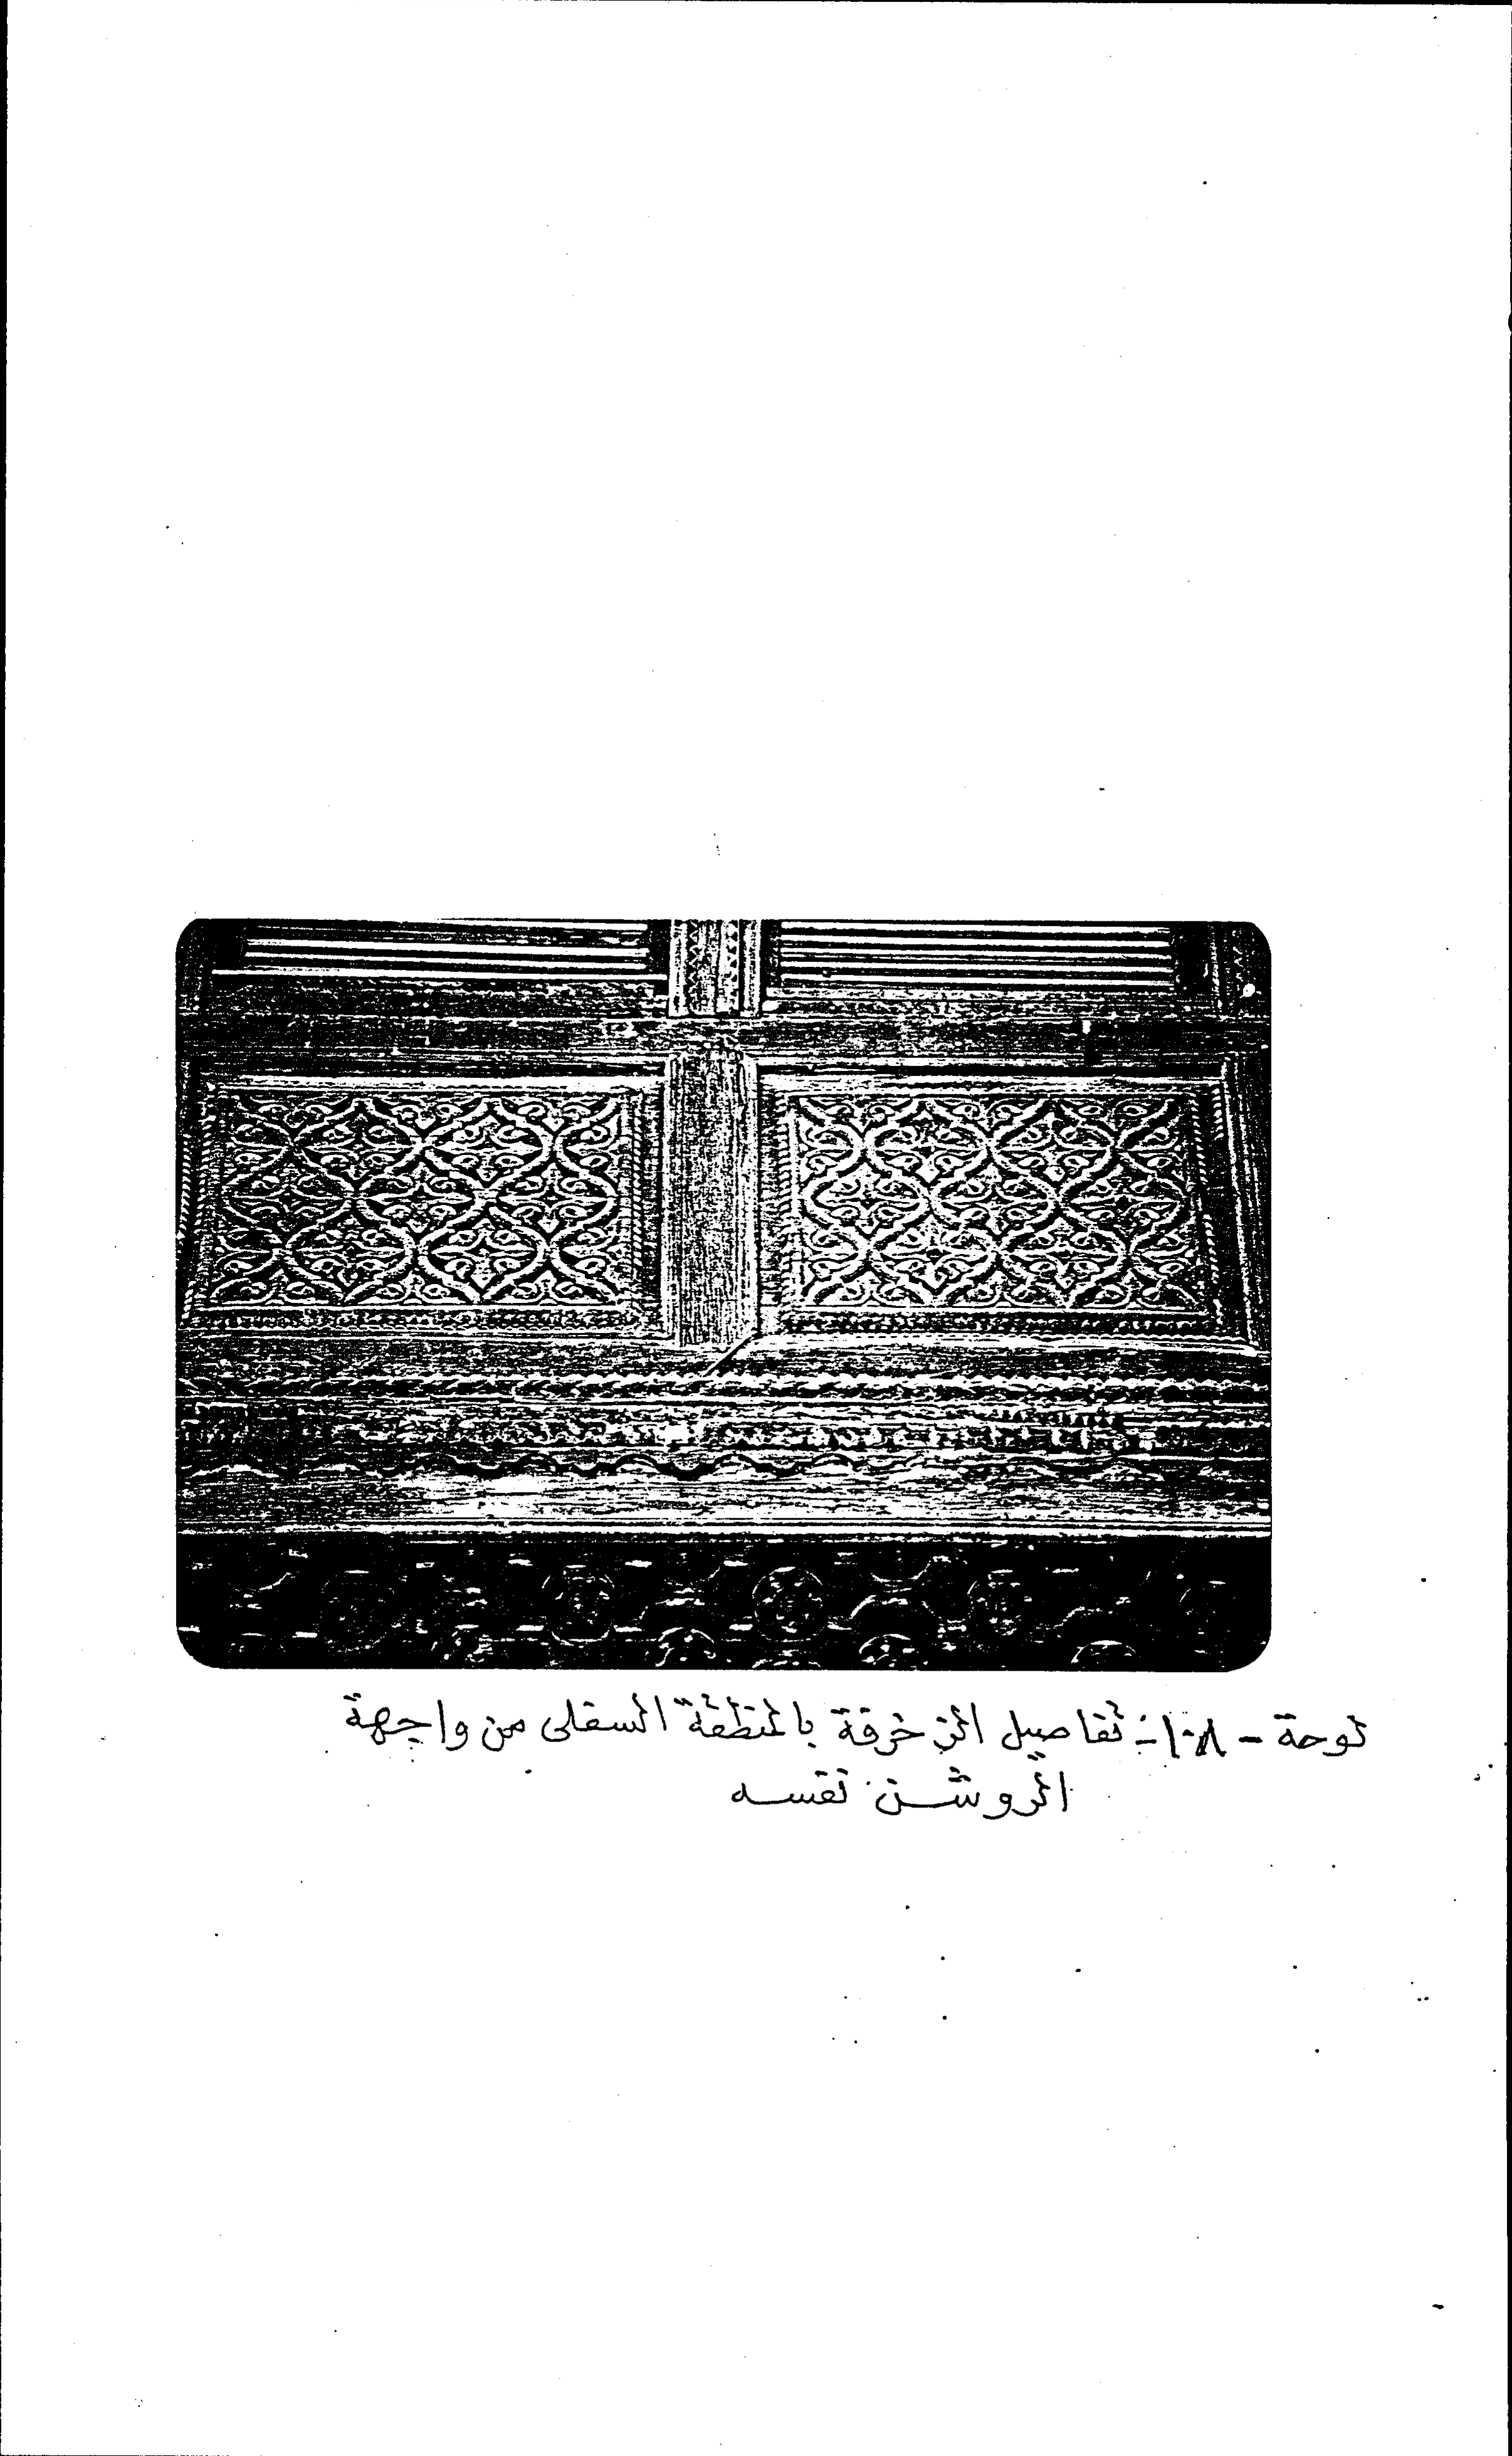 لوحة - ١٠٨ -: تفاصيل الزخرفة بالمنطقة السفلى من واجهة
الروشن نفسه